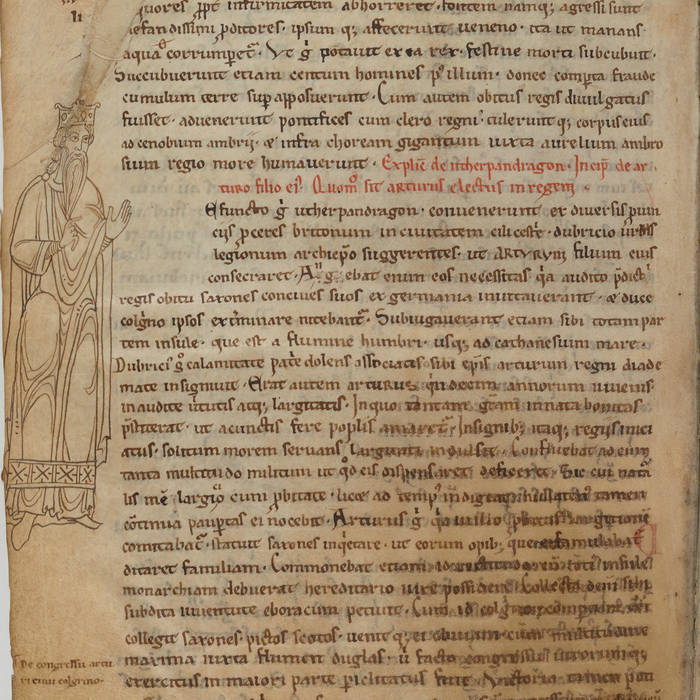 quores ppt infirmitatem abhorreret. fontem namq; agressi sunt
nefandissimi proditores. ipsum q; affecerunt ueneno. ita ut manans
aqua corrumpet. Vt g potauit ex ea rex. festine morti succubuit.
Succubuerunt etiam centum homines p illum. donec comperta fraude
cumulum terre sup apposuerunt. Cum autem obitus regis diuulgatus
fuisset. aduenerunt pontifices cum clero regni. tulerunt q; corpus eius
ad cenobium ambrii. & infra choream gigantum iuxta aurelium ambro
sium regio more humauerunt. Explic de utherpendragon. Incip de ar
turo filio ei. Quom sit arturus electus in regem.
Efuncto g utherpendragon. conuenerunt ex diuersis puin
ciis pceres britonum in ciuitatem cilcestr. dubricio urbis
legionum archiepo suggerentes. ut ARTVRVM filium eius
consecraret. Augebat enim eos necessitas qa audito pdict
regis obitu saxones conciues suos ex germania inuitauerant. & duce
colgno ipsos exterminare nitebant. Subiugauerant etiam sibi totam par
tem insule. que est a flumine humbri usq; ad cathanesium mare.
Dubrici g calamitate patrie dolens associatis sibi epis arturum regni diade
mate insigniuit. Erat autem arturus quindecim annorum iuuenis
inaudite uirtutis atq; largitatis. In quo tantam gram innata bonitas
pstiterat. ut a cunctis fere poplis amaret. Insignib; itaq; regiis inici
atus. solitum morem seruans largitati indulsit. Confluebat ad eum
tanta multitudo militum ut qd eis dispensaret deficeret. Sic cui nata
lis inest largitio cum pbitate. licet ad temp indigeat nullaten tamen
continua paupertas ei nocebit. Arturus g qa in illo pbitas largitione
comitabat. statuit saxones inqetare. ut eorum opib; que ei famulabat
ditaret familiam. Commonebat etiam id rectitudo cum toti insule
monarchiam debuerat hereditario iure possidere. Collecta deni sibi
subdita iuuentute eboracum petiuit. Cum id colgno compertum
collegit saxones. pictos scotos. uenit q; ei obuiam cum multitudine
maxima iuxta flumen duglas. u facto congressu utrorumq;
exercitus in maiori parte piclitatus fuit. Victoria tamen poti
De congressu artu
ri cum colgrino.